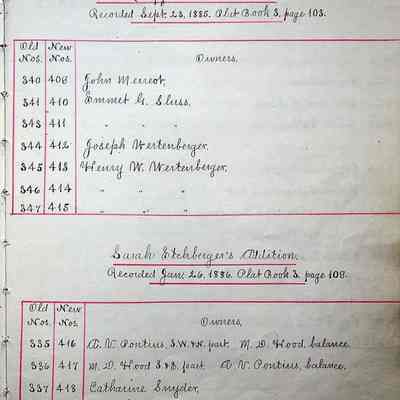 Recorded Sept. 23, 1885. Plat Book 3, page 103.
Old Nos. New Nos. Owners.
340 408 John Merreot,
341 410 Emmet G. Sluss,
343 411 " " "
344 412 Joseph Wertenberger,
345 413 Henry W. Wertenberger,
346 414 " " "
347 415 " " "
Sarah Etchberger's Addition.
Recorded Jan. 26, 1886. Plat Book 3, page 108.
Old Nos. New Nos. Owners.
335 416 A. V. Pontius, S.W. & N. part. M. D. Wood, balance.
336 417 M. D. Wood S. & E. part. A. V. Pontius, balance.
337 418 Catharine Snyder,